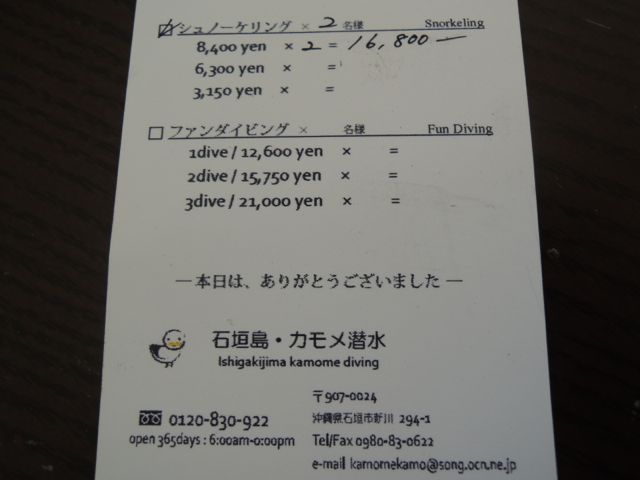 ☑ シュノーケリング × 2 名様 Snorkeling
8,400 yen × 2 = 16,800 —
6,300 yen × =
3,150 yen × =
☐ ファンダイビング × 名様 Fun Diving
1dive / 12,600 yen × =
2dive / 15,750 yen × =
3dive / 21,000 yen × =
— 本日は、ありがとうございました —
石垣島・カモメ潜水
Ishigakijima kamome diving
〒907-0024
0120-830-922 沖縄県石垣市新川 294-1
open 365days : 6:00am-0:00pm Tel/Fax 0980-83-0622
e-mail kamomekamo@song.ocn.ne.jp